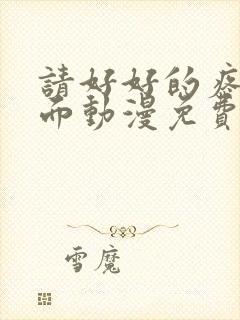 請好好的疼
而動漫免費
雪魔